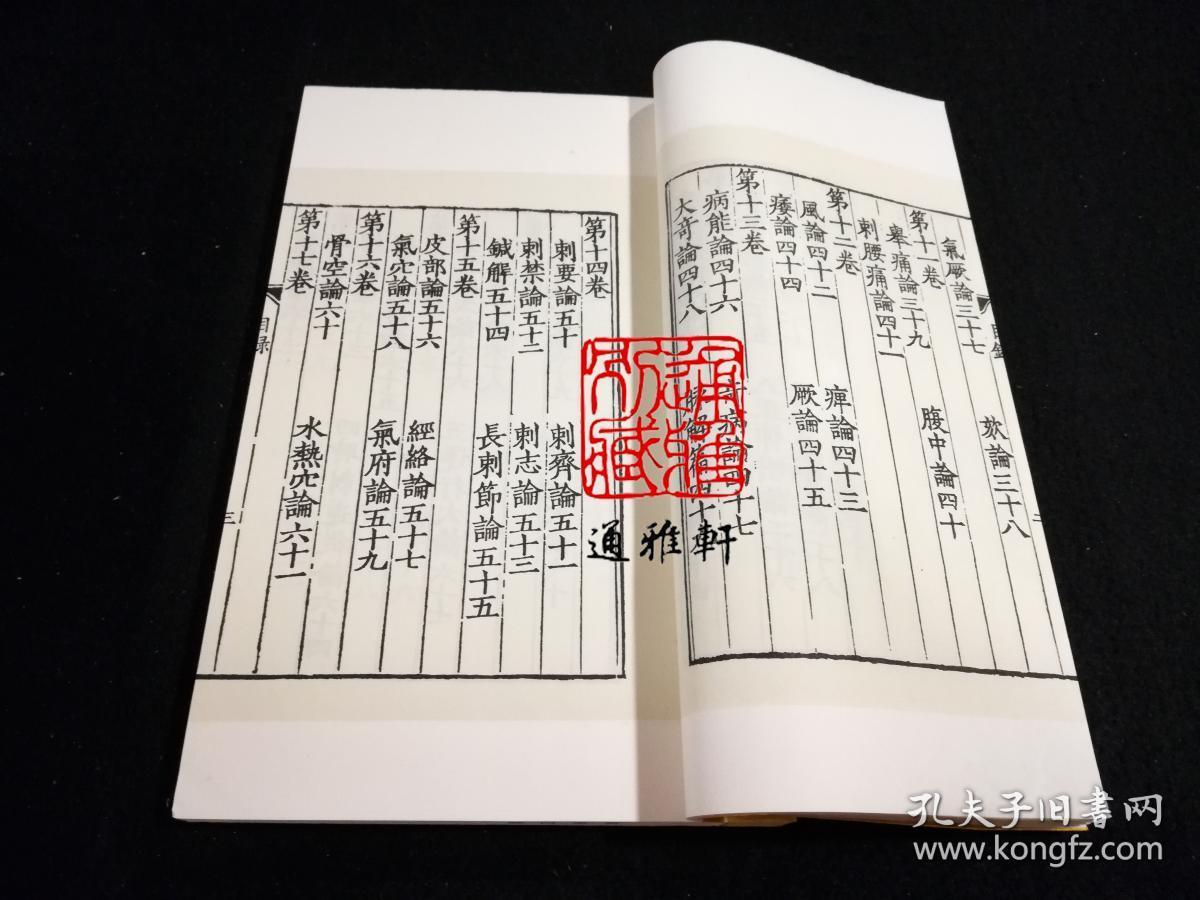 氣厥論三十七 欬論三十八
第十一卷
舉痛論三十九 腹中論四十
刺腰痛論四十一
第十二卷
風論四十二 痺論四十三
痿論四十四 厥論四十五
第十三卷
病能論四十六 奇病論四十七
大奇論四十八 解篇四十
目錄
三
第十四卷
刺要論五十 刺齊論五十一
刺禁論五十二 刺志論五十三
鍼解五十四 長刺節論五十五
第十五卷
皮部論五十六 經絡論五十七
氣穴論五十八 氣府論五十九
第十六卷
骨空論六十 水熱穴論六十一
第十七卷
目錄
三
通雅軒所藏
通雅軒
孔夫子旧书网
www.kongfz.com